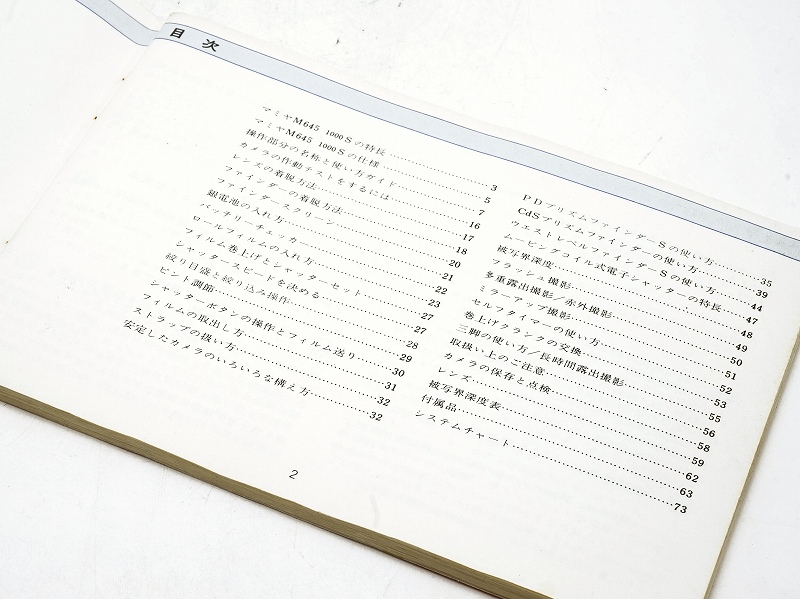 目次
マミヤM645 1000Sの特長……3
マミヤM645 1000Sの仕様……5
操作部分の名称と使い方ガイド……7
カメラの作動テストをするには……16
レンズの着脱方法……17
ファインダーの着脱方法……18
ファインダースクリーン……20
銀電池の入れ方……21
バッテリーチェッカー……22
ロールフィルムの入れ方……23
フィルム巻上げとシャッターセット……27
シャッタースピードを決める……27
絞り目盛と絞り込み操作……28
ピント調節……29
シャッターボタンの操作とフィルム送り……30
フィルムの取出し方……31
ストラップの扱い方……32
安定したカメラのいろいろな構え方……32
PDプリズムファインダーSの使い方……35
CdSプリズムファインダーの使い方……39
ウエストレベルファインダーSの使い方……44
ムービングコイル式電子シャッターの特長……47
被写界深度……48
フラッシュ撮影……49
多重露出撮影／赤外撮影……50
ミラーアップ撮影……51
セルフタイマーの使い方……52
巻上げクランクの交換……53
三脚の使い方／長時間露出撮影……55
取扱い上のご注意……56
カメラの保存と点検……58
レンズ……59
被写界深度表……62
付属品……63
システムチャート……73
2